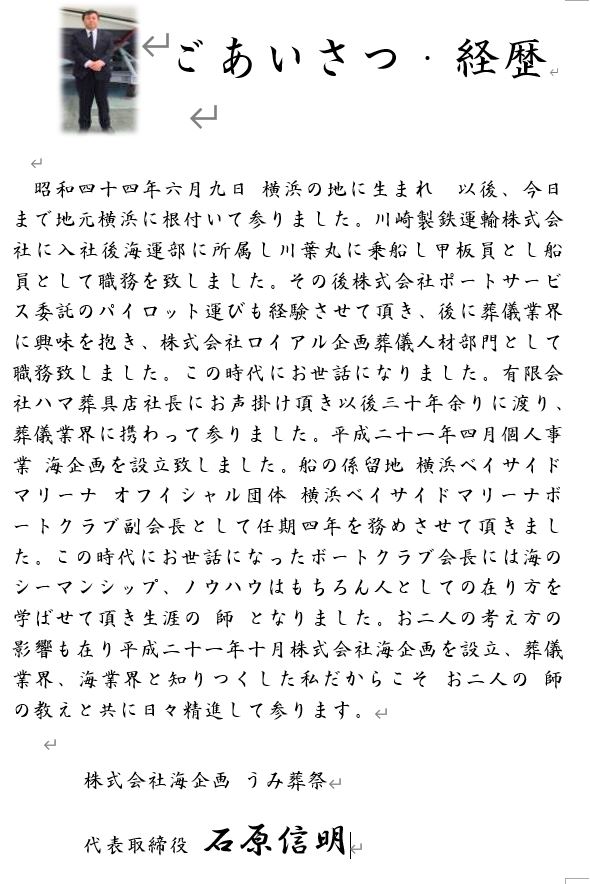 ごあいさつ・経歴
昭和四十四年六月九日 横浜の地に生まれ 以後、今日
まで地元横浜に根付いて参りました。川崎製鉄運輸株式会
社に入社後海運部に所属し川葉丸に乗船し甲板員とし船
員として職務を致しました。その後株式会社ポートサービ
ス委託のパイロット運びも経験させて頂き、後に葬儀業界
に興味を抱き、株式会社ロイアル企画葬儀人材部門として
職務致しました。この時代にお世話になりました。有限会
社ハマ葬具店社長にお声掛け頂き以後三十年余りに渡り、
葬儀業界に携わって参りました。平成二十一年四月個人事
業 海企画を設立致しました。船の係留地 横浜ベイサイド
マリーナ オフイシャル団体 横浜ベイサイドマリーナボ
ートクラブ副会長として任期四年を務めさせて頂きまし
た。この時代にお世話になったボートクラブ会長には海の
シーマンシップ、ノウハウはもちろん人としての在り方を
学ばせて頂き生涯の 師 となりました。お二人の考え方の
影響も在り平成二十一年十月株式会社海企画を設立、葬儀
業界、海業界と知りつくした私だからこそ お二人の 師
の教えと共に日々精進して参ります。
株式会社海企画 うみ葬祭
代表取締役 石原信明